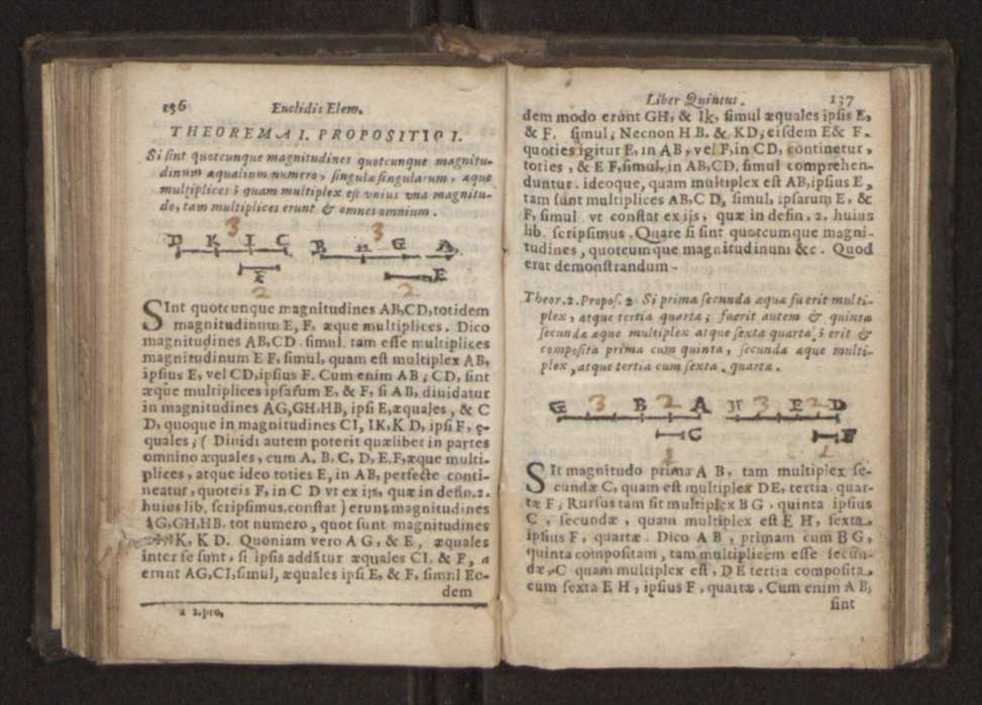 156 Euclidis Elem.
THEOREMA I. PROPOSITIO I.
Si sint quotcunque magnitudines quotcunque magnitu-
dinum æqualium numero, singulæ singularum, æque
multiplices; quam multiplex est vnius vna magnitu-
do, tam multiplices erunt & omnes omnium.
3 3
D K I C B H G A
E E
2 2
SInt quotcunque magnitudines AB, CD, totidem
magnitudinum E, F, æque multiplices. Dico
magnitudines AB, CD simul tam esse multiplices
magnitudinum E F, simul, quam est multiplex AB,
ipsius E, vel CD, ipsius F. Cum enim AB, CD, sint
æque multiplices ipsarum E, & F, si AB, diuidatur
in magnitudines AG, GH, HB, ipsi E, æquales, & C
D, quoque in magnitudines CI, IK, K D, ipsi F, ę-
quales; ( Diuidi autem poterit quælibet in partes
omnino æquales, cum A. B. C. D, E. F, æque multi-
plices, atque ideo toties E, in AB, perfecte conti-
neatur, quoteis F, in C D vt ex ijs, quæ in defin. 2.
huius lib. scripsimus, constat ) erunt magnitudines
AG, GH, HB. tot numero, quot sunt magnitudines
IK, K D. Quoniam vero A G, & E, æquales
inter se sunt, si ipsis addātur æquales CI. & F,
erunt AG, CI, simul, æquales ipsi E, & F, simul Eo-
dem
a 2. pro,
Liber Quintus. 137
dem modo erunt GH, & Ik, simul æquales ipsis E,
& F, simul; Necnon H B. & KD; eisdem E & F.
quoties igitur E, in AB, vel F, in CD, continetur,
toties, & E F, simul, in AB, CD, simul comprehen-
duntur. ideoque, quam multiplex est AB, ipsius E,
tam sunt multiplices AB, C D, simul, ipsarum E, &
F, simul vt constat ex ijs, quæ in defin. 2. huius
lib. scripsimus. Quare si sint quotcumque magni-
tudines, quotcumque magnitudinum &c. Quod
erat demonstrandum.
Theor. 2. Propos. 2 Si prima secundæ æque fuerit multi-
plex, atque tertia quartæ; fuerit autem & quinta
secundæ æque multiplex atque sexta quartæ; erit &
composita prima cum quinta, secundæ æque multi-
plex, atque tertia cum sexta, quartæ.
G 3 B 2 A H 3 E 2 D
C F
1 1
SIt magnitudo prima A B, tam multiplex se-
cundæ C, quam est multiplex DE, tertia quar-
tæ F; Rursus tam sit multiplex B G, quinta ipsius
C, secundæ, quam multiplex est E H, sexta
ipsius F, quartæ. Dico A B, primam cum B G,
quinta compositam, tam multiplicem esse secun-
dæ C quam multiplex est, D E tertia composita
cum sexta E H, ipsius F, quartæ. Cum enim A B,
sint